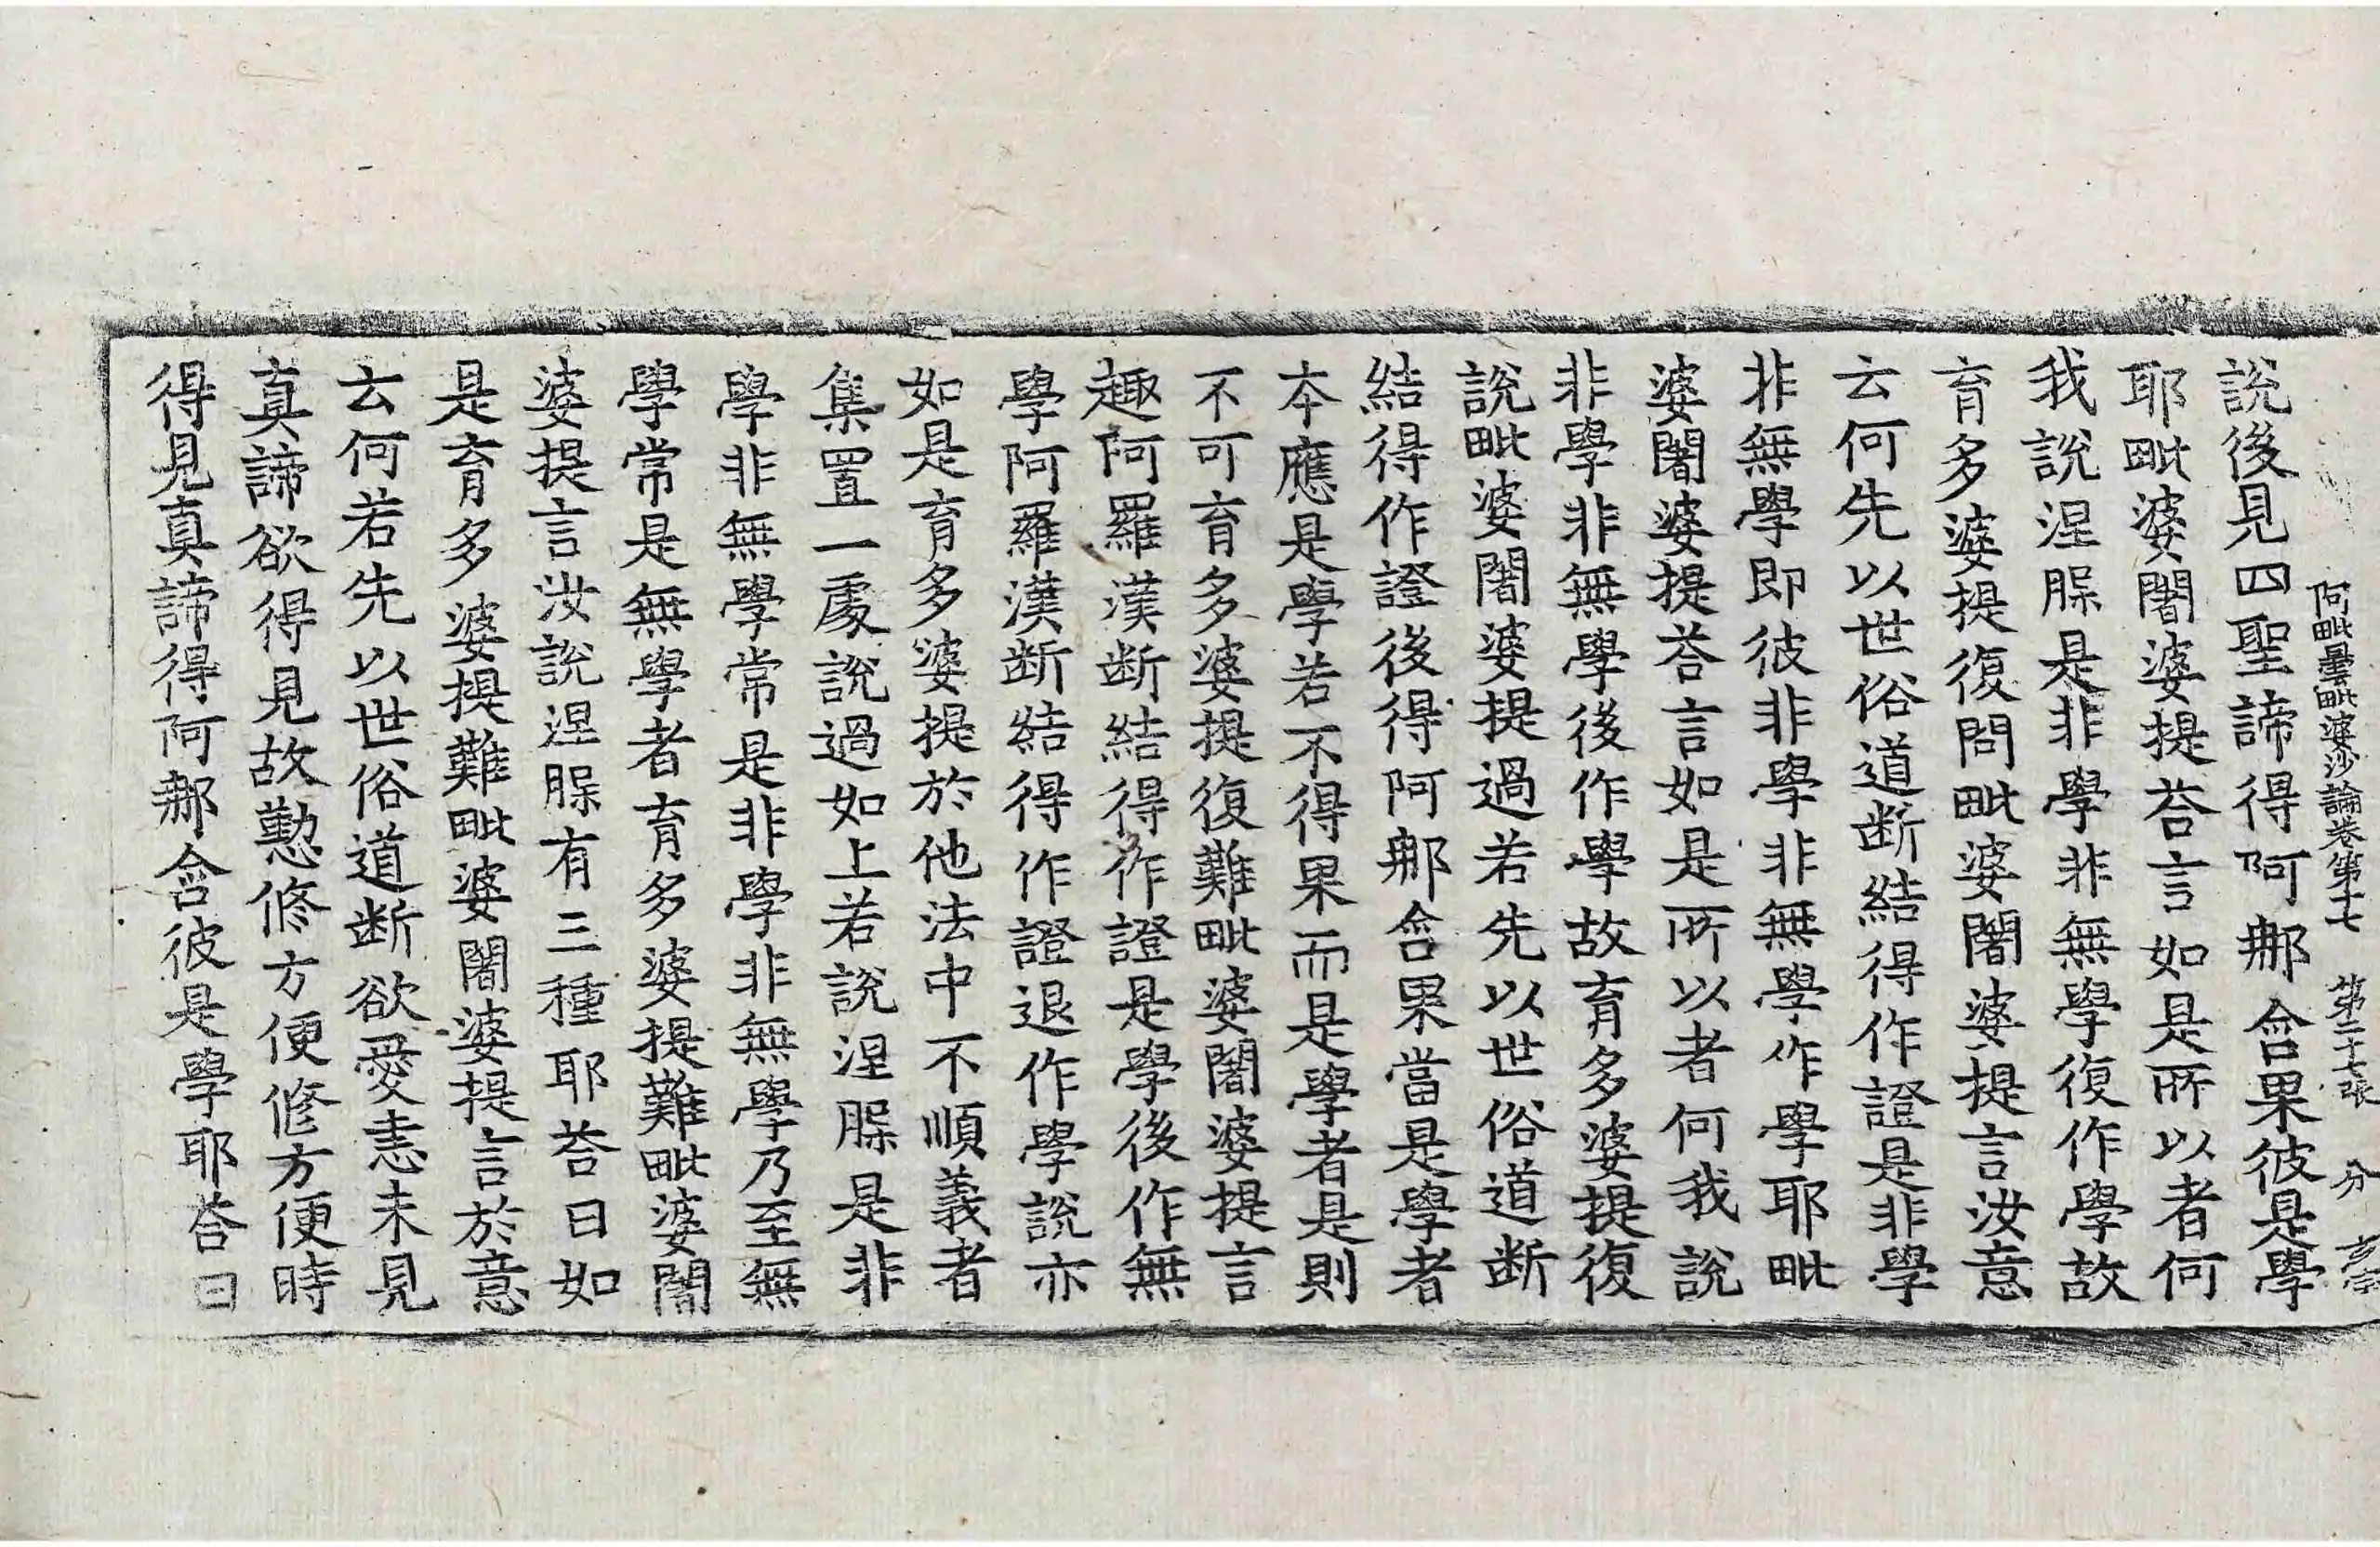 阿毗曇毗婆沙論卷第十七　第二十七張　分
說後見四聖諦得阿那含果彼是學
耶毗婆闍婆提荅言如是所以者何
我說涅槃是非學非無學復作學故
育多婆提復問毗婆闍婆提言汝意
云何先以世俗道断結得作證是非學
非無學即彼非學非無學作學耶毗
婆闍婆提荅言如是所以者何我說
非學非無學後作學故育多婆提復
說毗婆闍婆提過若先以世俗道断
結得作證後得阿那含果當是學者
本應是學若不得果而是學者是則
不可育多婆提復難毗婆闍婆提言
趣阿羅漢断結得作證是學後作無
學阿羅漢断結得作證退作學說亦
如是育多婆提於他法中不順義者
集置一處說過如上若說涅槃是非
學非無學常是非學非無學乃至無
學常是無學者育多婆提難毗婆闍
婆提言汝說涅槃有三種耶荅曰如
是育多婆提難毗婆闍婆提言於意
云何若先以世俗道断欲愛恚未見
真諦欲得見故懃修方便修方便時
得見真諦得阿那含彼是學耶荅曰